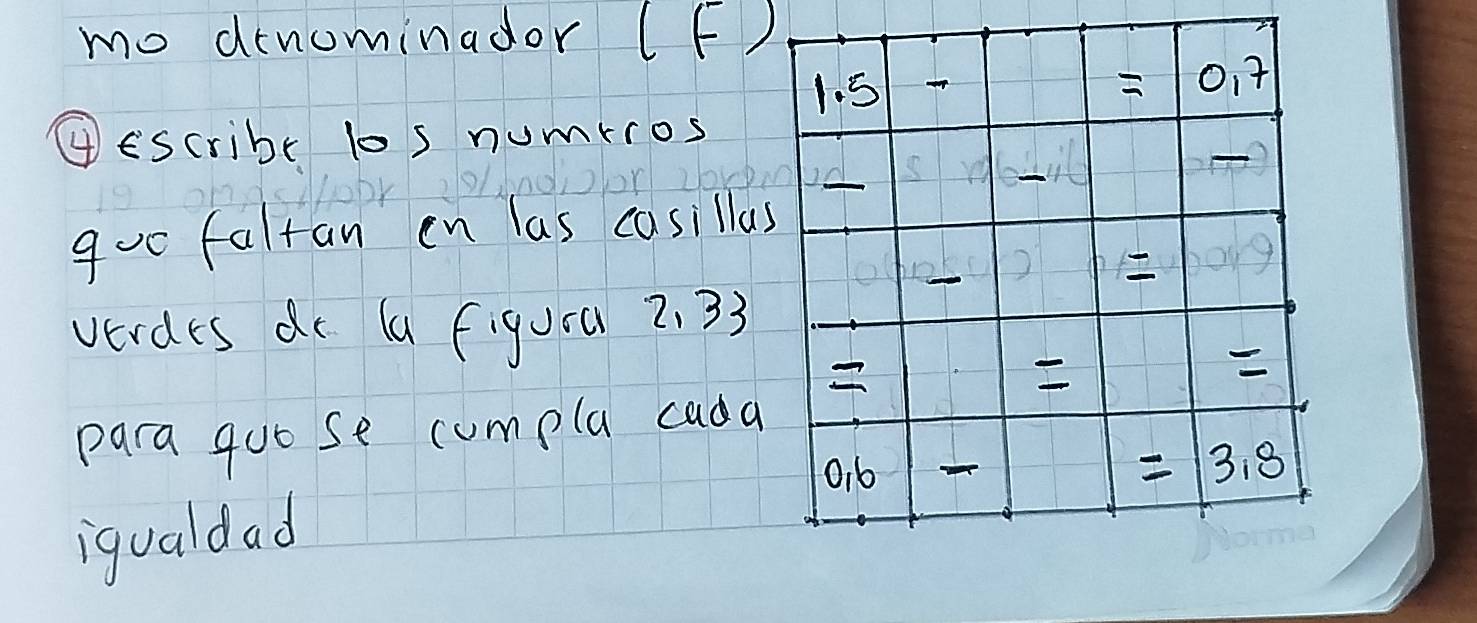 mo denominador (F)
④ Escribe los numeros
que faltan en las casillas
verdes de la figura 2,33
para que se cumpla cada
igualdad
1.5 - = 0,7
- - -
- =
= = =
0,6 - = 3,8
Norma